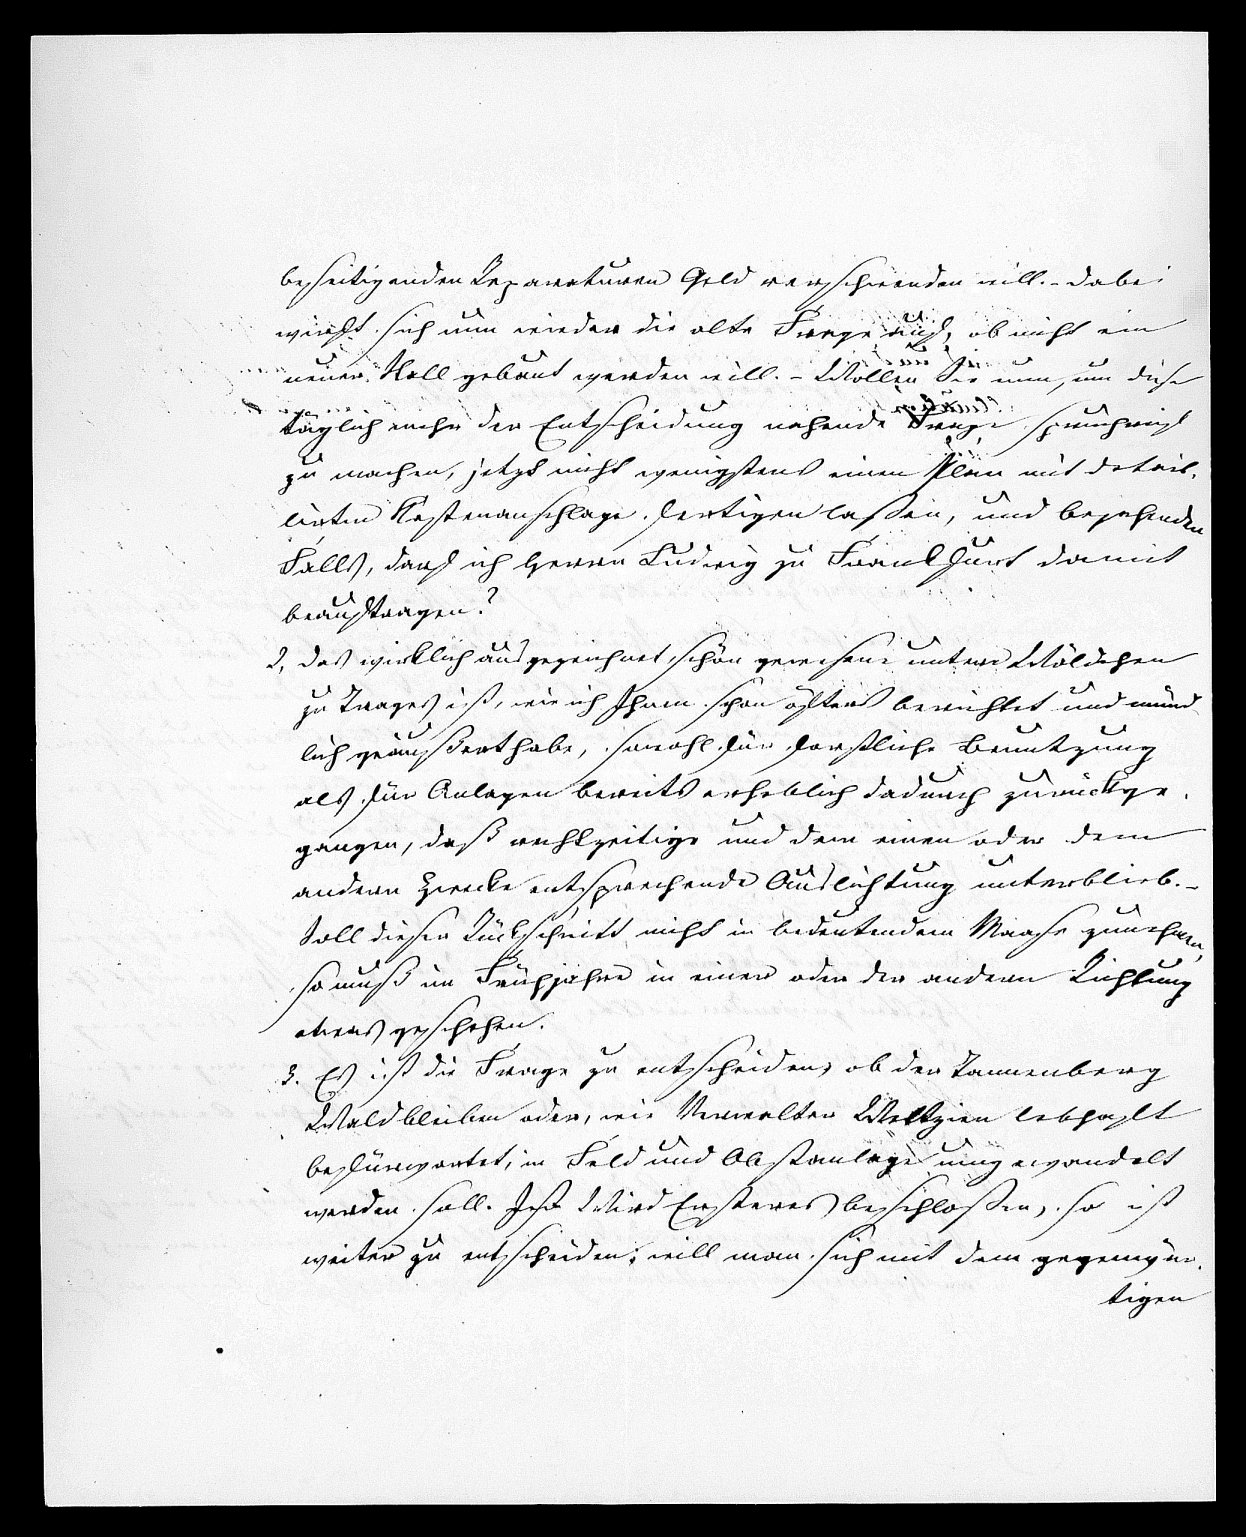 beseitigenden Reparaturen Geld verschwenden will. - dabei
wirft sich nun wieder die alte Frage auf, ob nicht ein
neuer Stall gebaut werden will. - Wollen Sie nun, um diese
täglich mehr der Entscheidung nahende Frage spruchreif
zu machen, jetzt nicht wenigstens einen Plan mit detail-
lirten Kostenanschlage fertigen laßen, und bejahenden
Falls, darf ich Herrn Ludwig zu Frankfurt damit
beauftragen?
2, das wirklich ausgezeichnet schön gewesene untere Wäldchen
zu Trages ist, wie ich Ihnen schon öfters berichtet und münd-
lich geäußert habe, sowohl für forstliche Benutzung
als für Anlagen bereits erheblich dadurch zurückge-
gangen, daß rechtzeitige und dem einen oder dem
andern Zwecke entsprechende Auslichtung unterblieb. -
Soll dieser Rückschritt nicht in bedeutendem Maase zunehmen,
so muß im Frühjahre in einer oder der andern Richtung
etwas geschehen.
3. Es ist die Frage zu entscheiden, ob der Tannenberg
Wald bleiben oder, wie Verwalter Weltzien lebhaft
befürwortet, in Feld und Obstanlage umgewandelt
werden soll. Wird Ersteres beschloßen, so ist
weiter zu entscheiden; will man sich mit dem gegenwär-
tigen